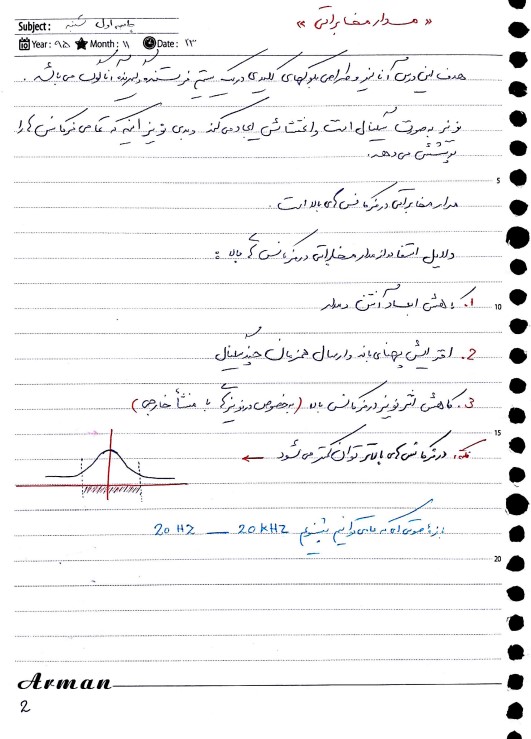 « مدار مخابراتی »
Subject: جلسه اول شنبه
Year: ۹۵ Month: ۱۱ Date: ۲۳
هدف این درس آنالیز و طراحی بلوکهای کلیدی در یک سیستم فرستنده و گیرنده آنالوگ می باشد.
نویز بصورت سیگنال است و اغتشاش ایجاد می کند و بدی نویز اینه که تمامی فرکانس ها را
پوشش می دهد.
5
مدار مخابراتی در فرکانس های بالا است.
دلایل استفاده از مدار مخابراتی در فرکانس های بالا :
1. کاهش ابعاد آنتن و مدار
10
2. افزایش پهنای باند و ارسال همزمان چند سیگنال
3. کاهش اثر نویز در فرکانس بالا (بخصوص در نویزهای با منشأ خارجی)
15
نکته: در فرکانس های بالاتر توان کمتر می شود ←
بازه صوتی ای که ما می توانیم بشنویم 20 HZ — 20 kHZ
20
Arman
2